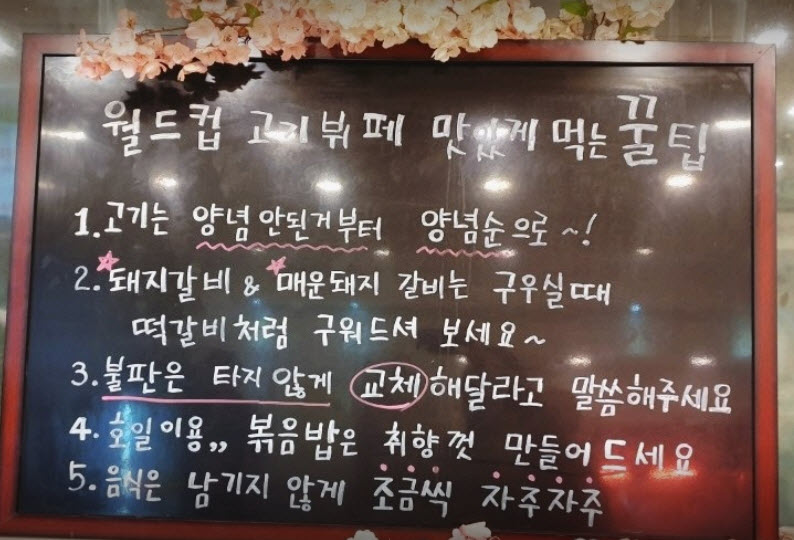 월드컵 고기뷔페 맛있게 먹는 꿀팁
1. 고기는 양념 안된거부터 양념순으로 ~!
2. 돼지갈비 & 매운돼지 갈비는 구우실때
떡갈비처럼 구워드셔 보세요~
3. 불판은 타지 않게 교체해달라고 말씀해주세요
4. 호일이용,, 볶음밥은 취향껏 만들어 드세요
5. 음식은 남기지 않게 조금씩 자주자주